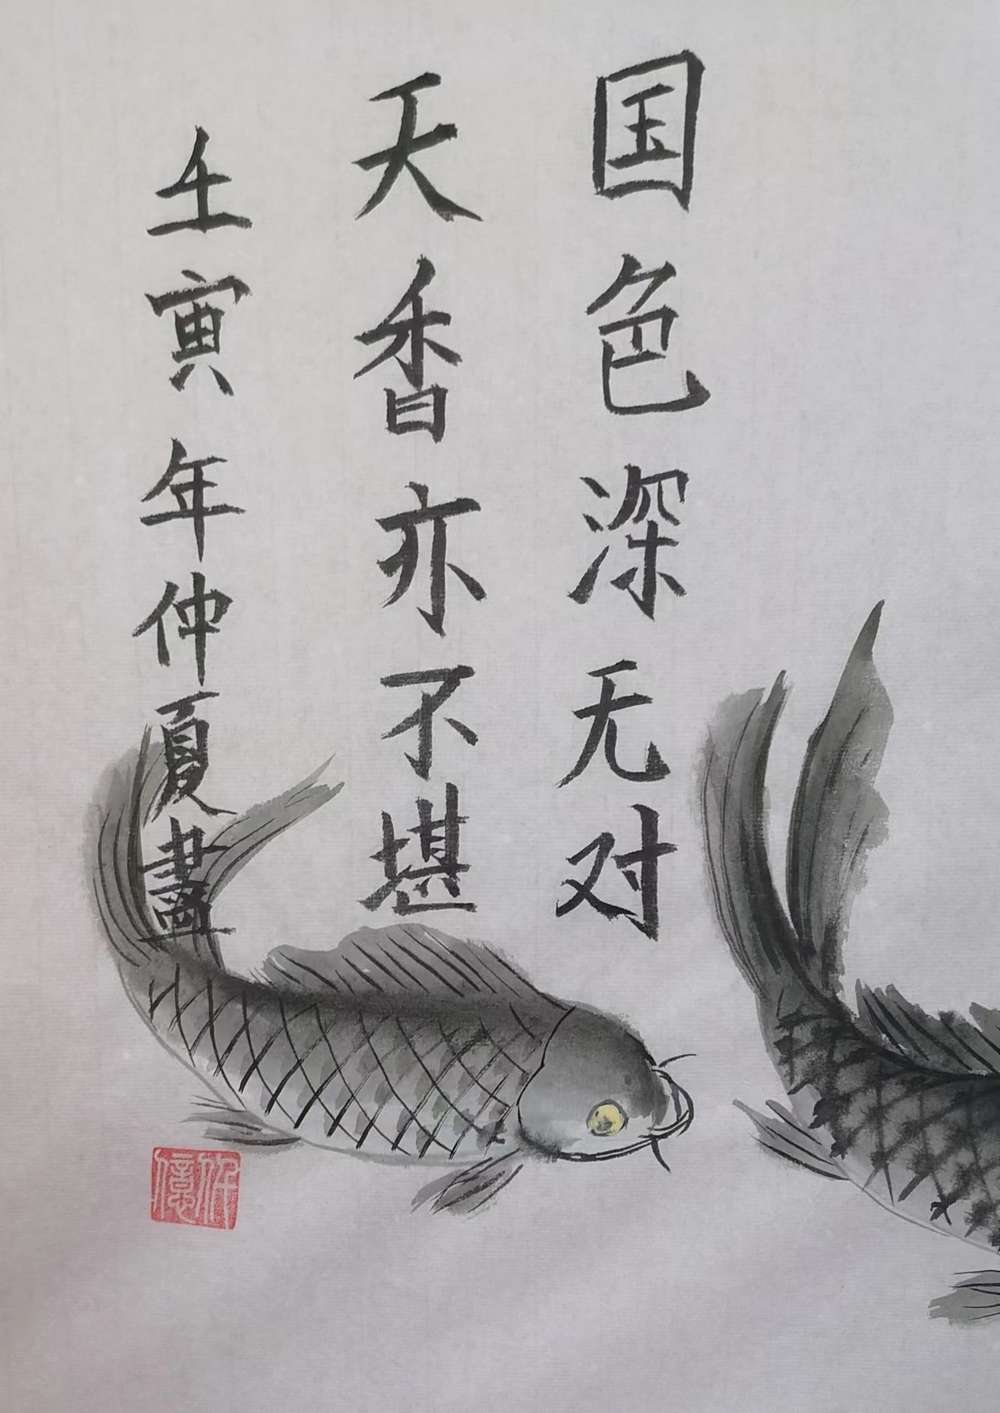 国色深无对
天香亦不堪
壬寅年仲夏畫